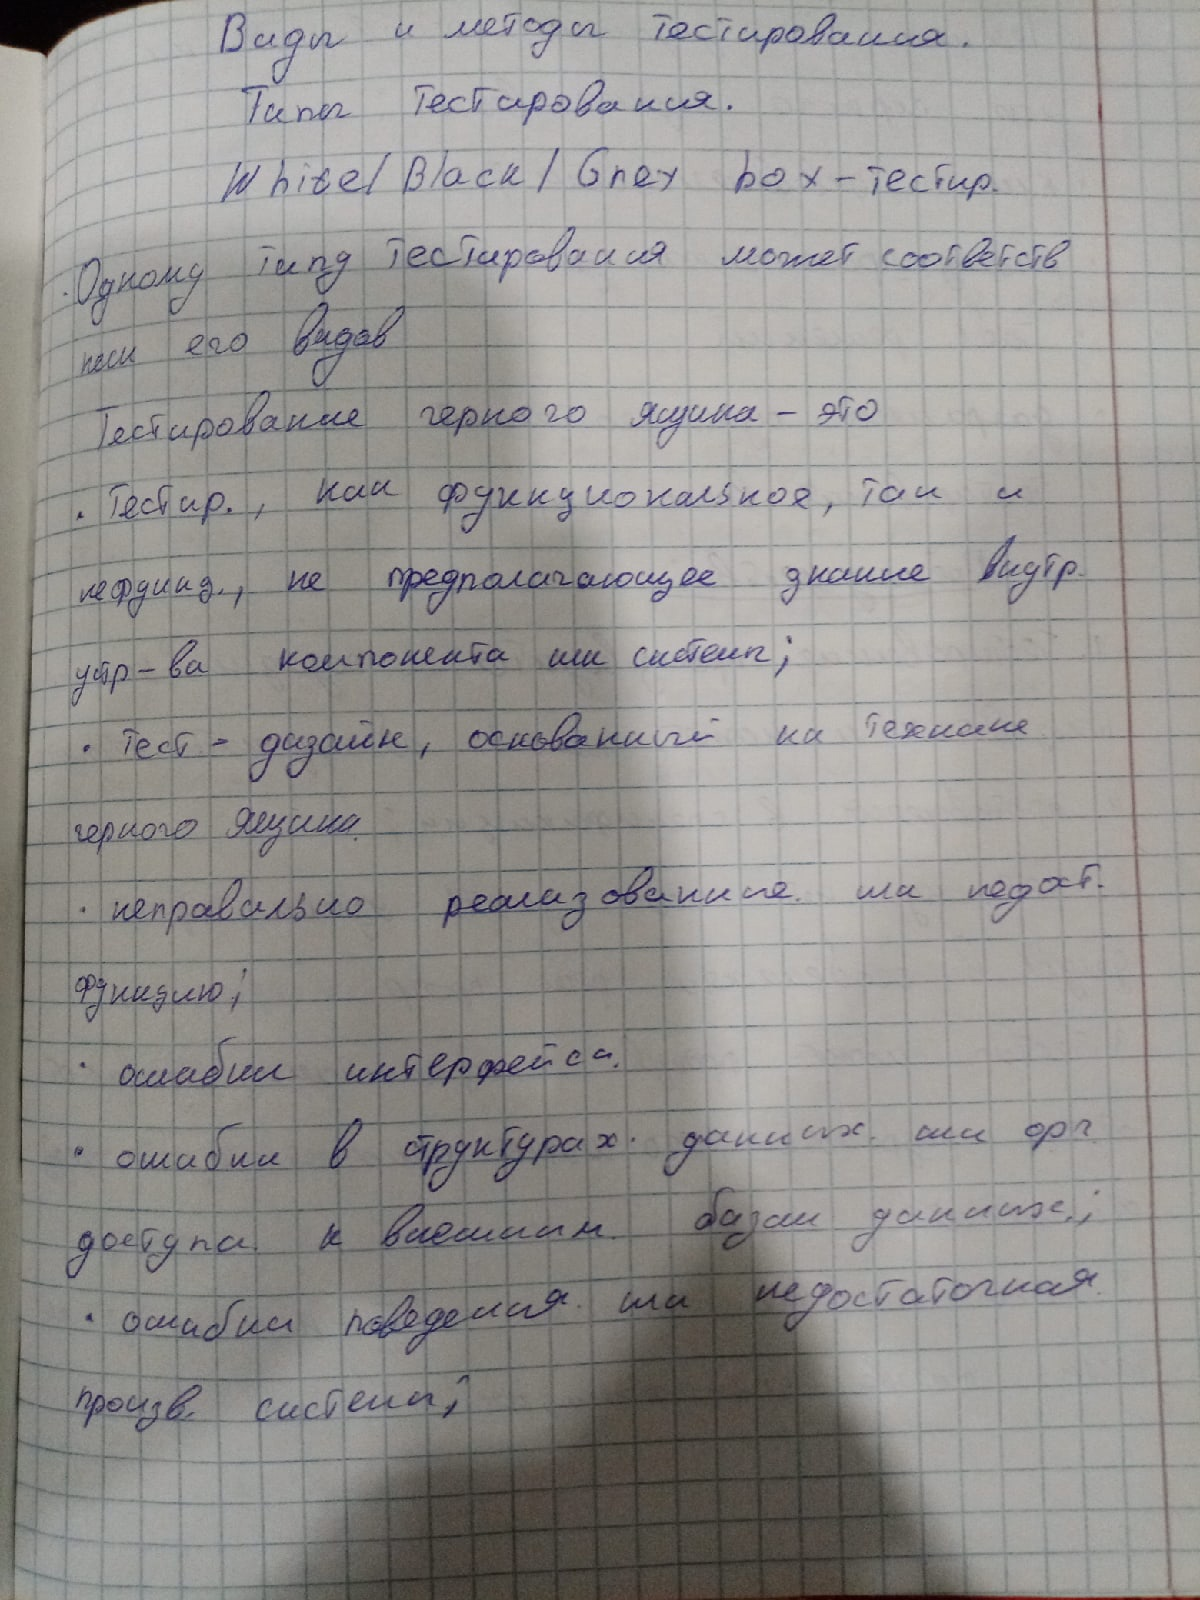 Виды и методы тестирования.
Типы тестирования.
White/Black/Grey box-тестир.
Одному типу тестирования может соответств
его видов
Тестирование черного ящика - это
· Тестир., как функциональное, так и
нефункц., не предполагающее знание внутр.
устр-ва компонента или системы;
· тест - дизайн, основанный на технике
черного ящика.
· неправильно реализованные или недост.
функцию;
· ошибки интерфейса.
· ошибки в структурах данных или орг.
доступа к внешним базам данных;
· ошибки поведения или недостаточная
произв. системы;